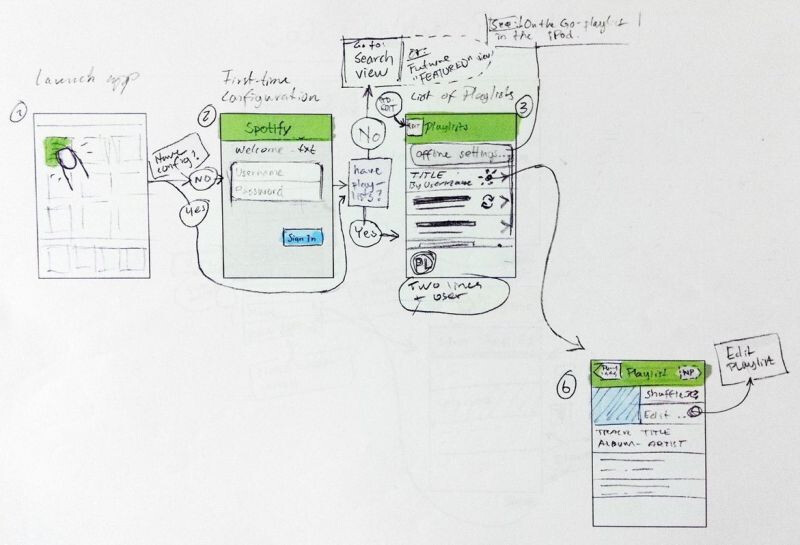 Launch app
1
Have
config?
NO
Yes
First-time
configuration
2
Spotify
Welcome .txt
Username
Password
Sign In
have
play-
lists?
No
Yes
Go to:
Search
view
Future
"FEATURED" view
See: On the Go-playlist
in the iPod.
List of Playlists
3
GO
EDIT
EDIT
Playlists
Offline settings...
TITLE
By Username
PL
TWO lines
+ user
6
Playlist
NP
Shuffle
Edit ..
TRACK TITLE
ALBUM - ARTIST
Edit
Playlist